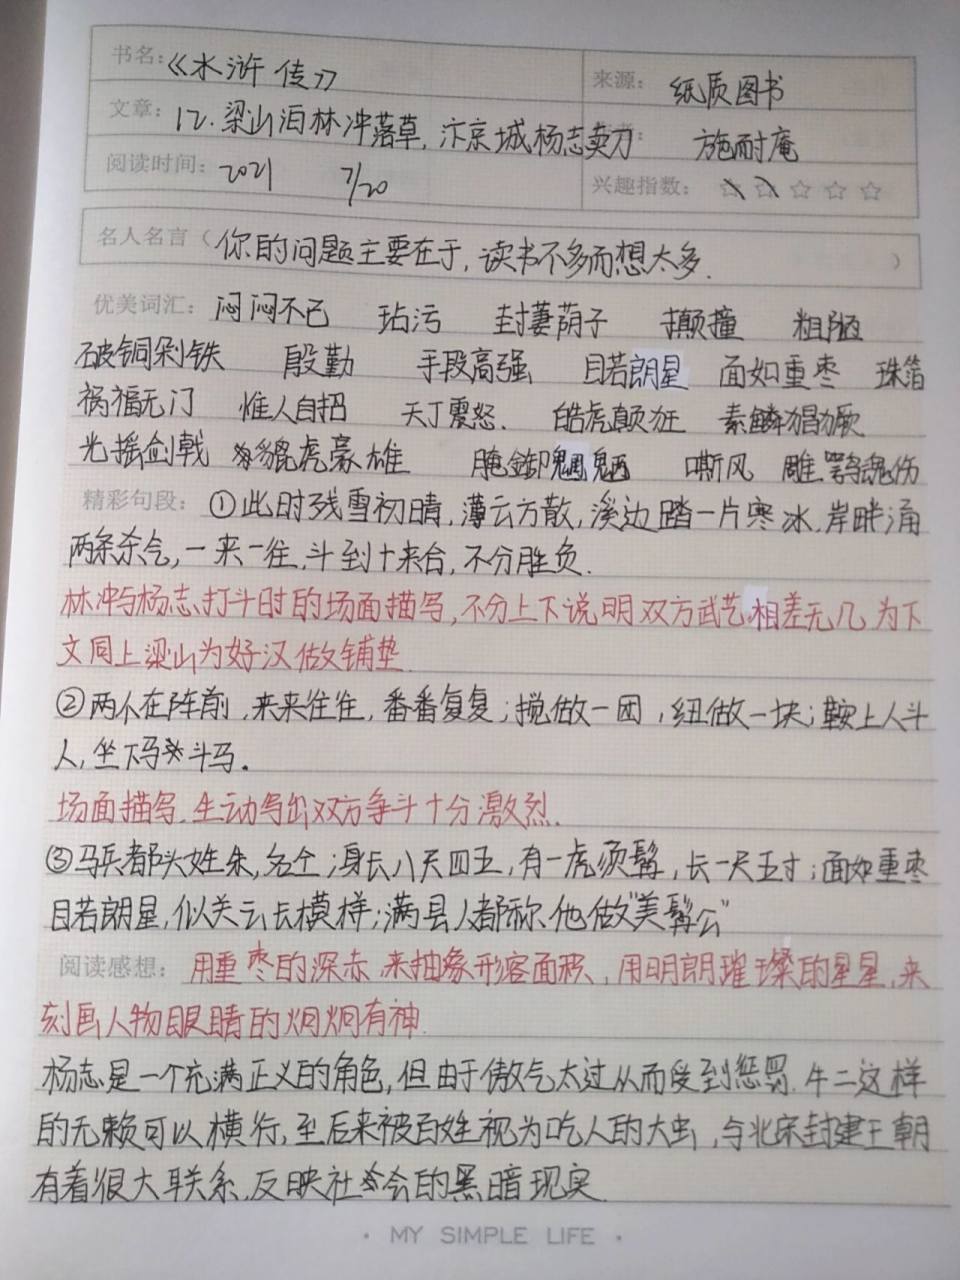 书名:《水浒传》 来源: 纸质图书
文章: 12.梁山泊林冲落草,汴京城杨志卖刀 施耐庵
阅读时间: 2021 7/20 兴趣指数: ☆☆☆☆☆
名人名言(你的问题主要在于,读书不多而想太多.)
优美词汇: 闷闷不已 玷污 封妻荫子 撞 粗陋
破铜剁铁 殷勤 手段高强 目若朗星 面如重枣 珠箔
祸福无门 惟人自招 天丁震怒. 皓虎颠狂 素鳞猖獗
光摇剑戟 貔虎豪雄 腌 魍魉 嘶风 雕鹗魂伤
精彩句段: ①此时残雪初晴,薄云方散,溪边踏一片寒冰,岸畔涌
两条杀气,一来一往,斗到十来合,不分胜负.
林冲与杨志打斗时的场面描写,不分上下说明双方武艺相差无几为下
文同上梁山为好汉做铺垫.
②两个在阵前,来来往往,番番复复;搅做一团,纽做一块;鞍上人斗
人,坐下马斗马.
场面描写.生动写出双方争斗十分激烈.
③马兵都头姓朱,名仝;身长八尺四五,有一虎须髯,长一尺五寸;面如重枣
目若朗星,似关云长模样;满县人都称他做"美髯公"
阅读感想: 用重枣的深赤来抽象形容面积,用明朗璀璨的星星,来
刻画人物眼睛的炯炯有神.
杨志是一个充满正义的角色,但由于傲气太过从而受到惩罚.牛二这样
的无赖可以横行,至后来被百姓视为吃人的大虫,与北宋封建王朝
有着很大联系,反映社会的黑暗现实.
· MY SIMPLE LIFE ·